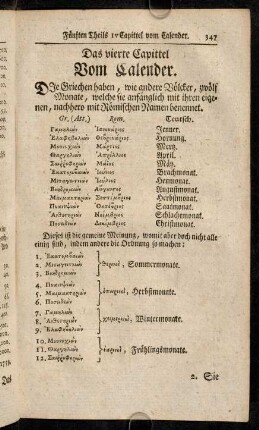 Fünften Theils IV Capitel vom Calender. 347
Das vierte Capittel
Vom Calender.
DIe Griechen haben, wie andere Völcker, zwölf
Monate, welche sie anfänglich mit ihren eige-
nen, nachhero mit Römischen Namen benennet.
Gr. (Att.) Rom. Teutsch.
Γαμηλιών Ἰαννάριος Jenner.
Ἐλαφηβολιών Φεβρυάριος Hornung.
Μουνιχιών Μάρτιος Mertz.
Θαργηλιών Ἀπρίλλιος April.
Σκιῤῥοφοριών Μάϊος Mäy.
Ἑκατομβαιών Ἰούνιος Brachmonat.
Μεταγειτνιών Ἰούλιος Heumonat.
Βοηδρομιών Αὔγουστος Augustmonat.
Μαιμακτηριών Herbstmonat.
Πυανεψιών Saatmonat.
Ἀνθεστηριών Νοέμβριος Schlachtmonat.
Ποσειδεών Δεκέμβριος Christmonat.
Dieses ist die gemeine Meinung, womit aber doch nicht alle
einig sind, indem andere die Ordnung so machen:
1. Ἑκατομβαιών
2. Μεταγειτνιών θερινοὶ, Sommermonate.
3. Βοηδρομιών
4. Πυανεψιών
5. Μαιμακτηριών ὀπωρινοὶ, Herbstmonate.
6. Ποσειδεών
7. Γαμηλιών
8. Ἀνθεστηριών χειμερινοὶ, Wintermonate.
9. Ἐλαφηβολιών
10. Μουνιχιών
11. Θαργηλιών ἐαρινοὶ, Frühlingsmonate.
12. Σκιῤῥοφοριών
2. Sie